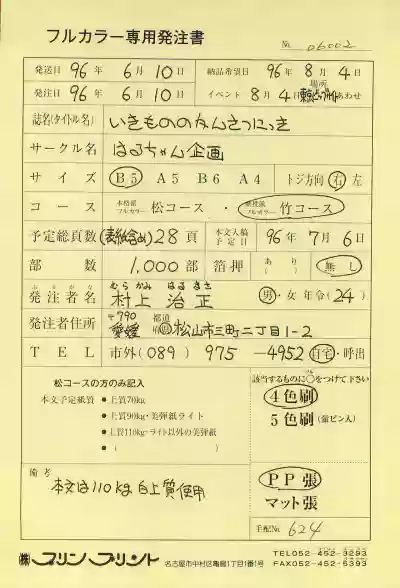 フルカラー専用発注書
№ 06002
発送日 96年 6月 10日 納品希望日 96年 8月 4日
発注日 96年 6月 10日 イベント 8月 4日 場所 あわせ
誌名(タイトル名) いきもののかんさつにっき
サークル名 はるちゃん企画
サイズ B5 A5 B6 A4 トジ方向 右 左
コース 本格派フルカラー 松コース ・ フルカラー 竹コース
予定総頁数 (表紙含み) 28頁 本文入稿予定日 96年 7月 6日
部数 1,000部 箔押 あり 無し
ふりがな むらかみ はるまさ
発注者名 村上 治正 男・女 年令(24)
発注者住所 〒790 愛媛 都道府県 松山市三町二丁目1-2
TEL 市外(089) 975-4952 自宅・呼出
松コースの方のみ記入
本文予定紙質 ●上質70kg
●上質90kg・美弾紙ライト
●上質110kg・ライト以外の美弾紙
●( )
該当するものに○をつけて下さい
4色刷
5色刷(蛍ピン入)
PP張
マット張
備考
本文は110kg白上質使用
手配№ 624
㈱プリンプリント
名古屋市中村区亀島1丁目1番1号
TEL052-452-3293
FAX052-452-5393